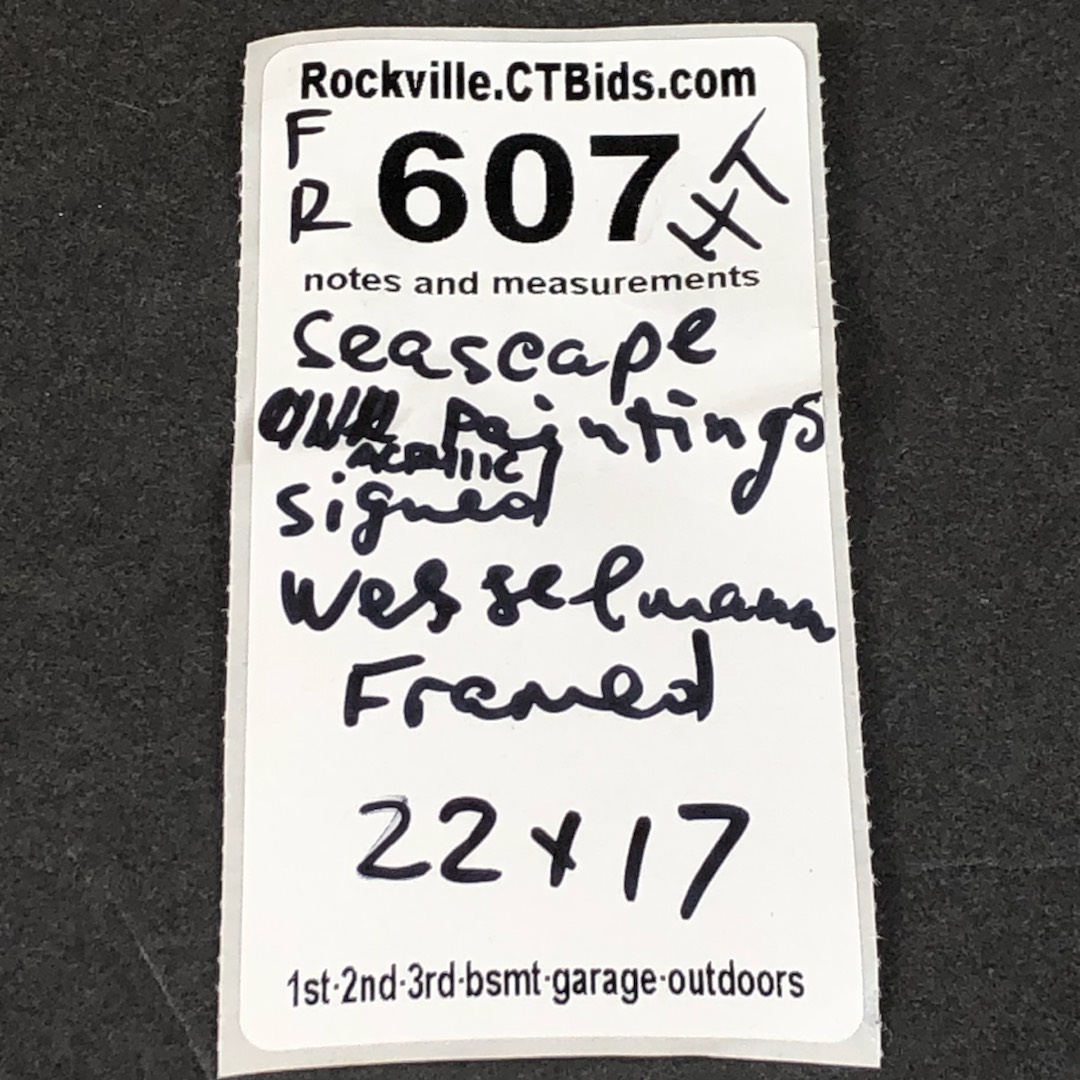 Rockville.CTBids.com
F
R
607
HT
notes and measurements
Seascape
Paintings
ACRYLIC
signed
Wesselmann
Framed
22 x 17
1st·2nd·3rd·bsmt·garage·outdoors